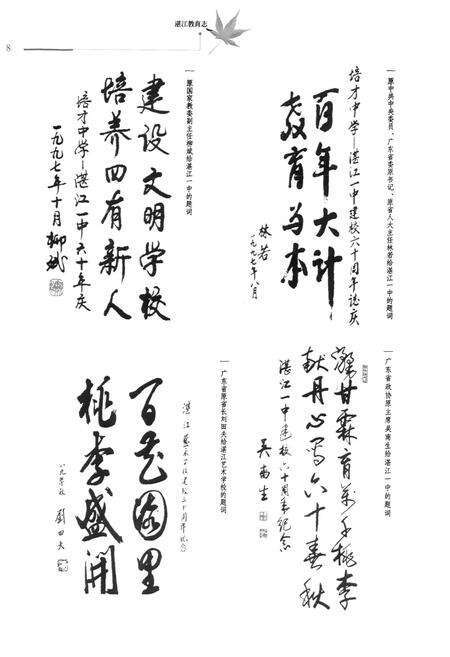 湛江教育志
8
原中共中央委员、广东省委原书记、原省人大主任林若给湛江一中的题词
培才中学—湛江一中建校六十周年志庆
百年大计
教育为本
林若
一九九七年八月
原国家教委副主任柳斌给湛江一中的题词
建设文明学校
培养四有新人
培才中学—湛江一中六十年庆
一九九七年十月 柳斌
广东省政协原主席吴南生给湛江一中的题词
甘霖育万千桃李
献丹心写六十春秋
湛江一中建校六十周年纪念
吴南生
广东省原省长刘田夫给湛江艺术学校的题词
湛江艺术学校建校三十周年
百花园里
桃李盛开
刘田夫